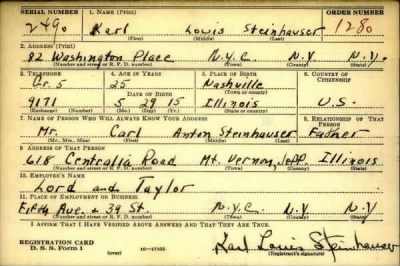 SERIAL NUMBER 1. NAME (Print) ORDER NUMBER
2490 Karl Louis Steinhauser 1280
(First) (Middle) (Last)
2. ADDRESS (Print)
82 Washington Place N.Y.C. N.Y N.Y.
(Number and street or R. F. D. number) (Town) (County) (State)
3. TELEPHONE 4. AGE IN YEARS 5. PLACE OF BIRTH 6. COUNTRY OF CITIZENSHIP
Gr. 5 25 Nashville
DATE OF BIRTH (Town or county)
9171 5 29 15 Illinois U.S.
(Exchange) (Number) (Mo.) (Day) (Yr.) (State or country)
7. NAME OF PERSON WHO WILL ALWAYS KNOW YOUR ADDRESS 8. RELATIONSHIP OF THAT PERSON
Mr. Carl Anton Steinhauser Father
(Mr., Mrs., Miss) (First) (Middle) (Last)
9. ADDRESS OF THAT PERSON
618 Centralia Road Mt. Vernon, Jeff. Illinois
(Number and street or R. F. D. number) (Town) (County) (State)
10. EMPLOYER'S NAME
Lord and Taylor
11. PLACE OF EMPLOYMENT OR BUSINESS
Fifth Ave. + 39 St. N.Y.C. N.Y N.Y
(Number and street or R. F. D. number) (Town) (County) (State)
I AFFIRM THAT I HAVE VERIFIED ABOVE ANSWERS AND THAT THEY ARE TRUE.
REGISTRATION CARD
D. S. S. Form 1 (over) 16-17105 Karl Louis Steinhauser
(Registrant's signature)